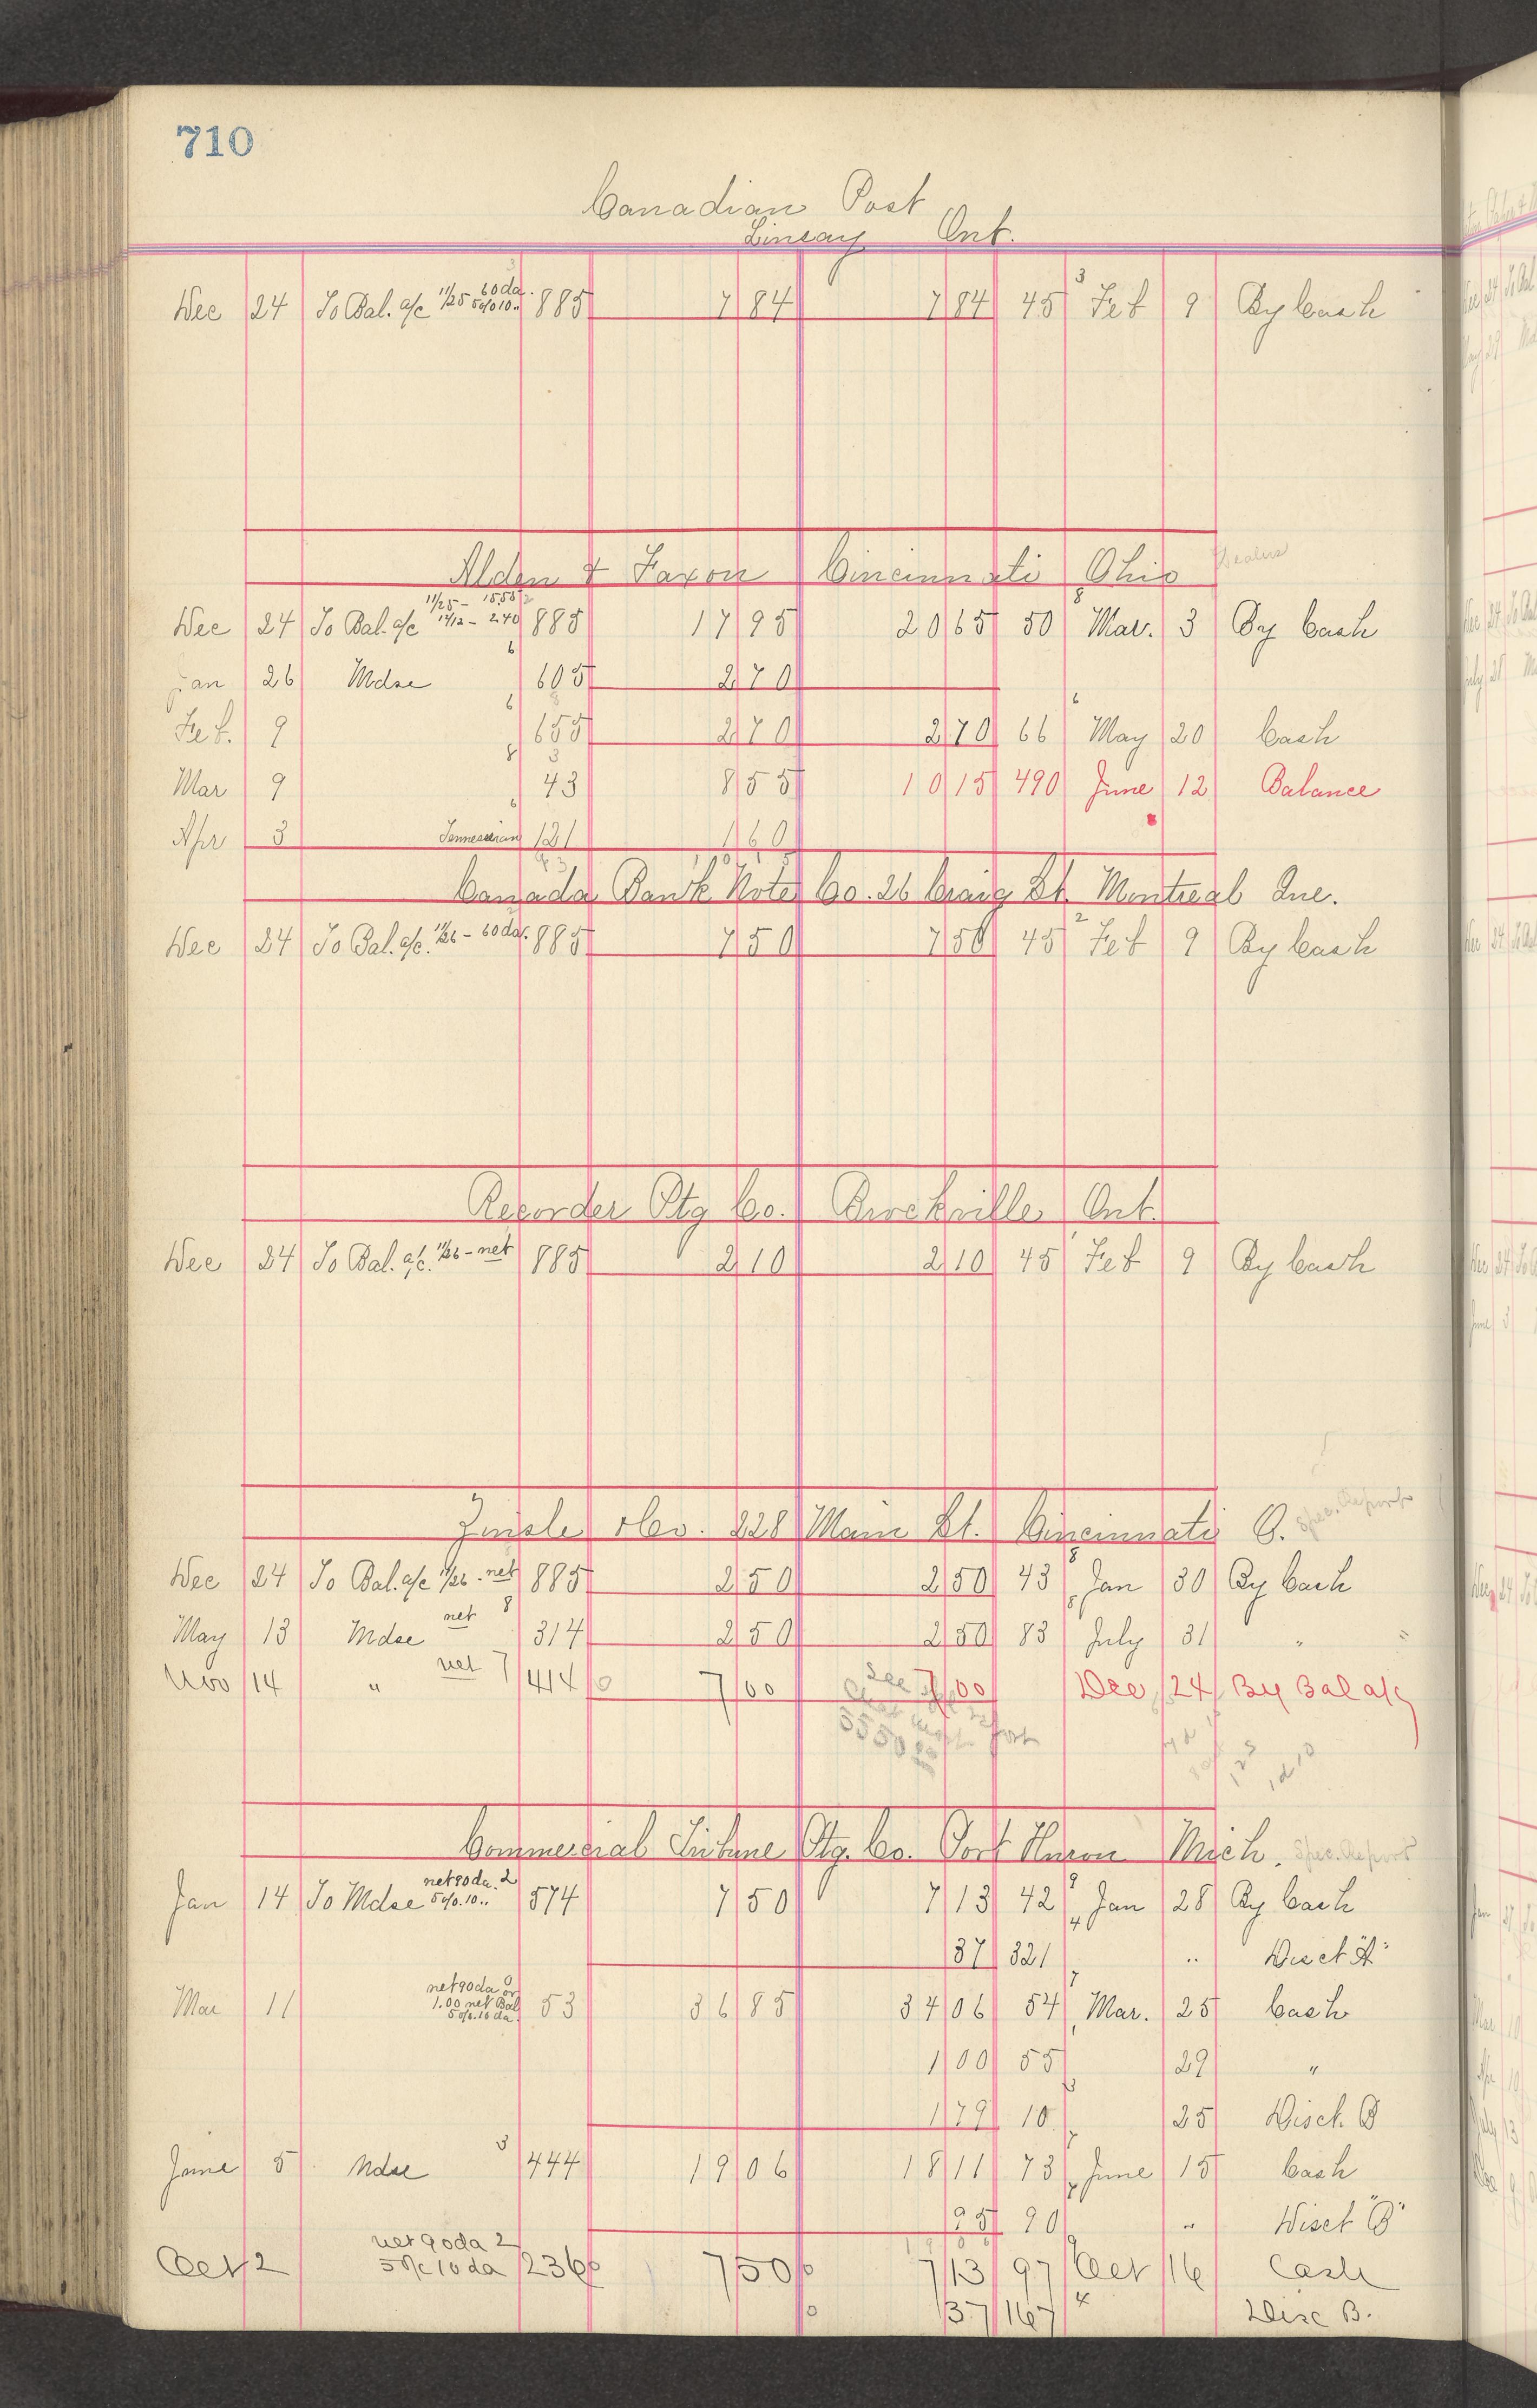 710
Canadian Post
Linsay Ont.
Dec 24 To Bal. a/c 11/25 60 da. 5% 10.. 885 7 84 7 84 45 Feb 9 By Cash
Alden & Faxon Cincinnati Ohio
Dec 24 To Bal. a/c 11/25 - 15.55 12/12 - 2.40 885 17 95 20 65 50 Mar. 3 By Cash
Jan 26 Mdse 605 2 70
Feb. 9 655 2 70 2 70 66 May 20 Cash
Mar 9 43 8 55 10 15 490 June 12 Balance
Apr 3 Tennessean 121 1 60
Canada Bank Note Co. 26 Craig St. Montreal Que.
Dec 24 To Bal. a/c. 11/26 - 60 da. 885 7 50 7 50 45 Feb 9 By Cash
Recorder Ptg Co. Brockville Ont.
Dec 24 To Bal. a/c. 11/26 - net 885 2 10 2 10 45 Feb 9 By Cash
228 Main St. Cincinnati O. Spec. Report
Dec 24 To Bal. a/c 11/26 - net 885 2 50 2 50 43 Jan 30 By Cash
May 13 Mdse net 314 2 50 2 50 83 July 31 "
Nov 14 " net 414 7 00 7 00 Dec 24 By Bal a/c
Commercial Tribune Ptg. Co. Port Huron Mich. Spec. Report
Jan 14 To Mdse net 90 da. 5% 10.. 574 7 50 7 13 42 Jan 28 By Cash
37 321 " Disct "A"
Mar 11 net 90 da or 1.00 net Bal 5% 10 da. 53 36 85 34 06 54 Mar. 25 Cash
1 00 55 29 "
1 79 10 25 Disct. B
June 5 Mdse 444 19 06 18 11 73 June 15 Cash
95 90 " Disct "B"
Oct 2 net 90 da 5% 10 da 236 7 50 7 13 97 Oct 16 Cash
37 167 Disc B.